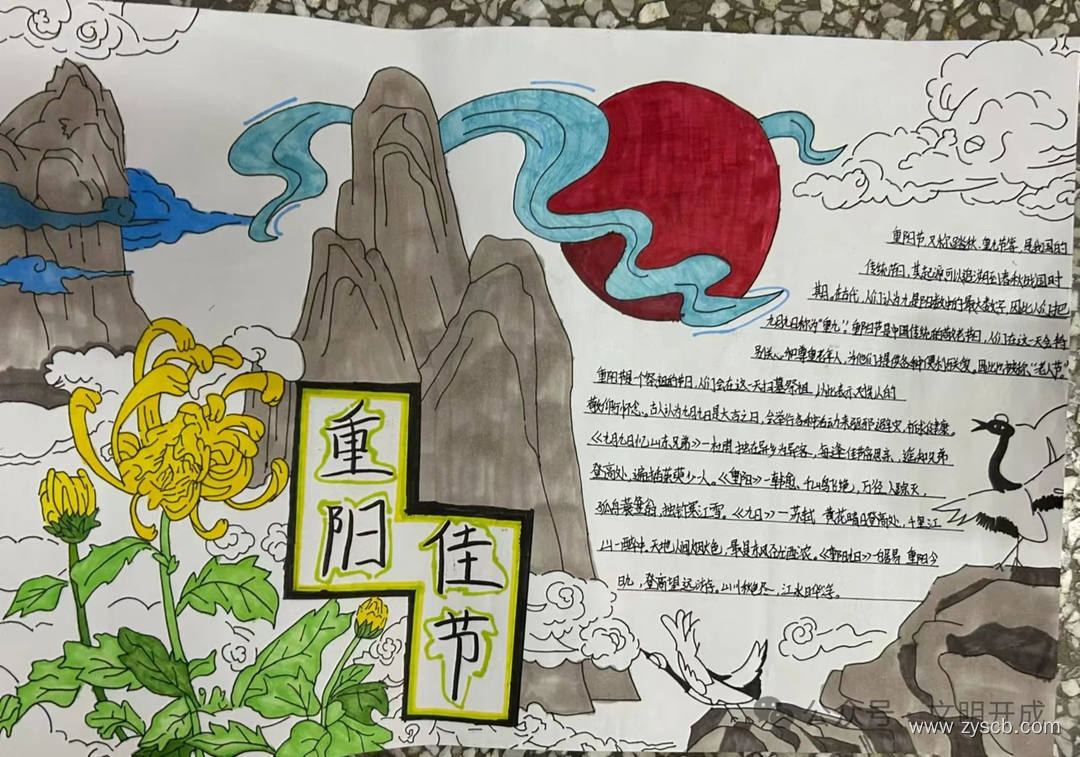 重阳
佳节
重阳节,又称踏秋、重九节等,是我国的
传统节日,其起源可以追溯到春秋战国时
期。在古代,人们认为九是阳数中的最大数字,因此人们把
九月九日称为“重九”。重阳节是中国传统的敬老节日,人们在这一天会特
别关心和尊重老年人,为他们提供各种,因此被称“老人节”
重阳节是一个祭祖的节日,人们会在这一天扫墓祭祖,以此表示对先人的
敬仰和怀念。古人认为九月九日是大吉之日,会举行各种活动来驱邪避灾,祈求健康。
《九月九日忆山东兄弟》一 独在异乡为异客,每逢佳节倍思亲。遥知兄弟
登高处,遍插茱萸少一人。《重阳》一 千山鸟飞绝,万径人踪灭,
孤舟蓑笠翁,独钓寒江雪。《九日》一苏轼 黄花 日登高处,千里江
山一醉中,天地人间烟火色,东风 《重阳日》一白居易 重阳今
日九,登高望远 山川秋色 ,江水日
公众号 文明开成
www.zyscb.com